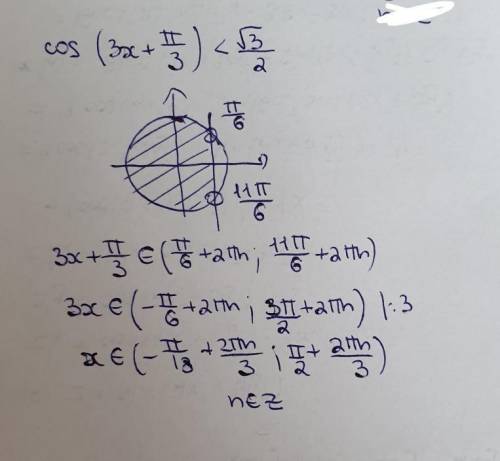 cos (3x + π/3) < √3/2
π/6
11π/6
3x + π/3 ∈ (π/6 + 2πn ; 11π/6 + 2πn)
3x ∈ (-π/6 + 2πn ; 3π/2 + 2πn) |:3
x ∈ (-π/18 + 2πn/3 ; π/2 + 2πn/3)
n∈Z